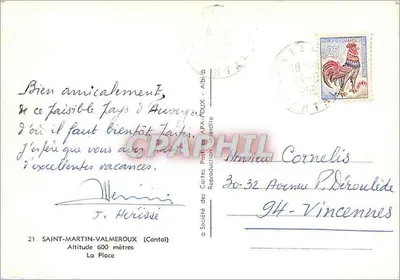 Bien amicalement,
de ce paisible pays d'Auvergne
d'où il faut bientôt partir.
J'espère que vous avez
d'excellentes vacances.
J. Hérissé
21 SAINT-MARTIN-VALMEROUX (Cantal)
Altitude 600 mètres
La Place
Société des Cartes Postales APA-POUX - Albi
CARTHAPHIL.COM
0,25
Monsieur Cornelis
30-32 Avenue P. Déroulède
94-Vincennes